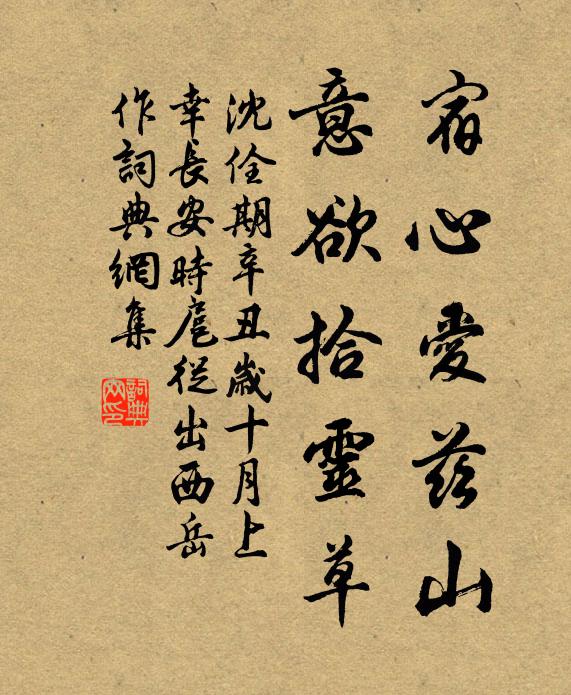 宿心愛茲山
意欲拾靈草
沈佺期辛丑歲十月上
幸長安時扈從出西岳
作詞典網集
詞典網印